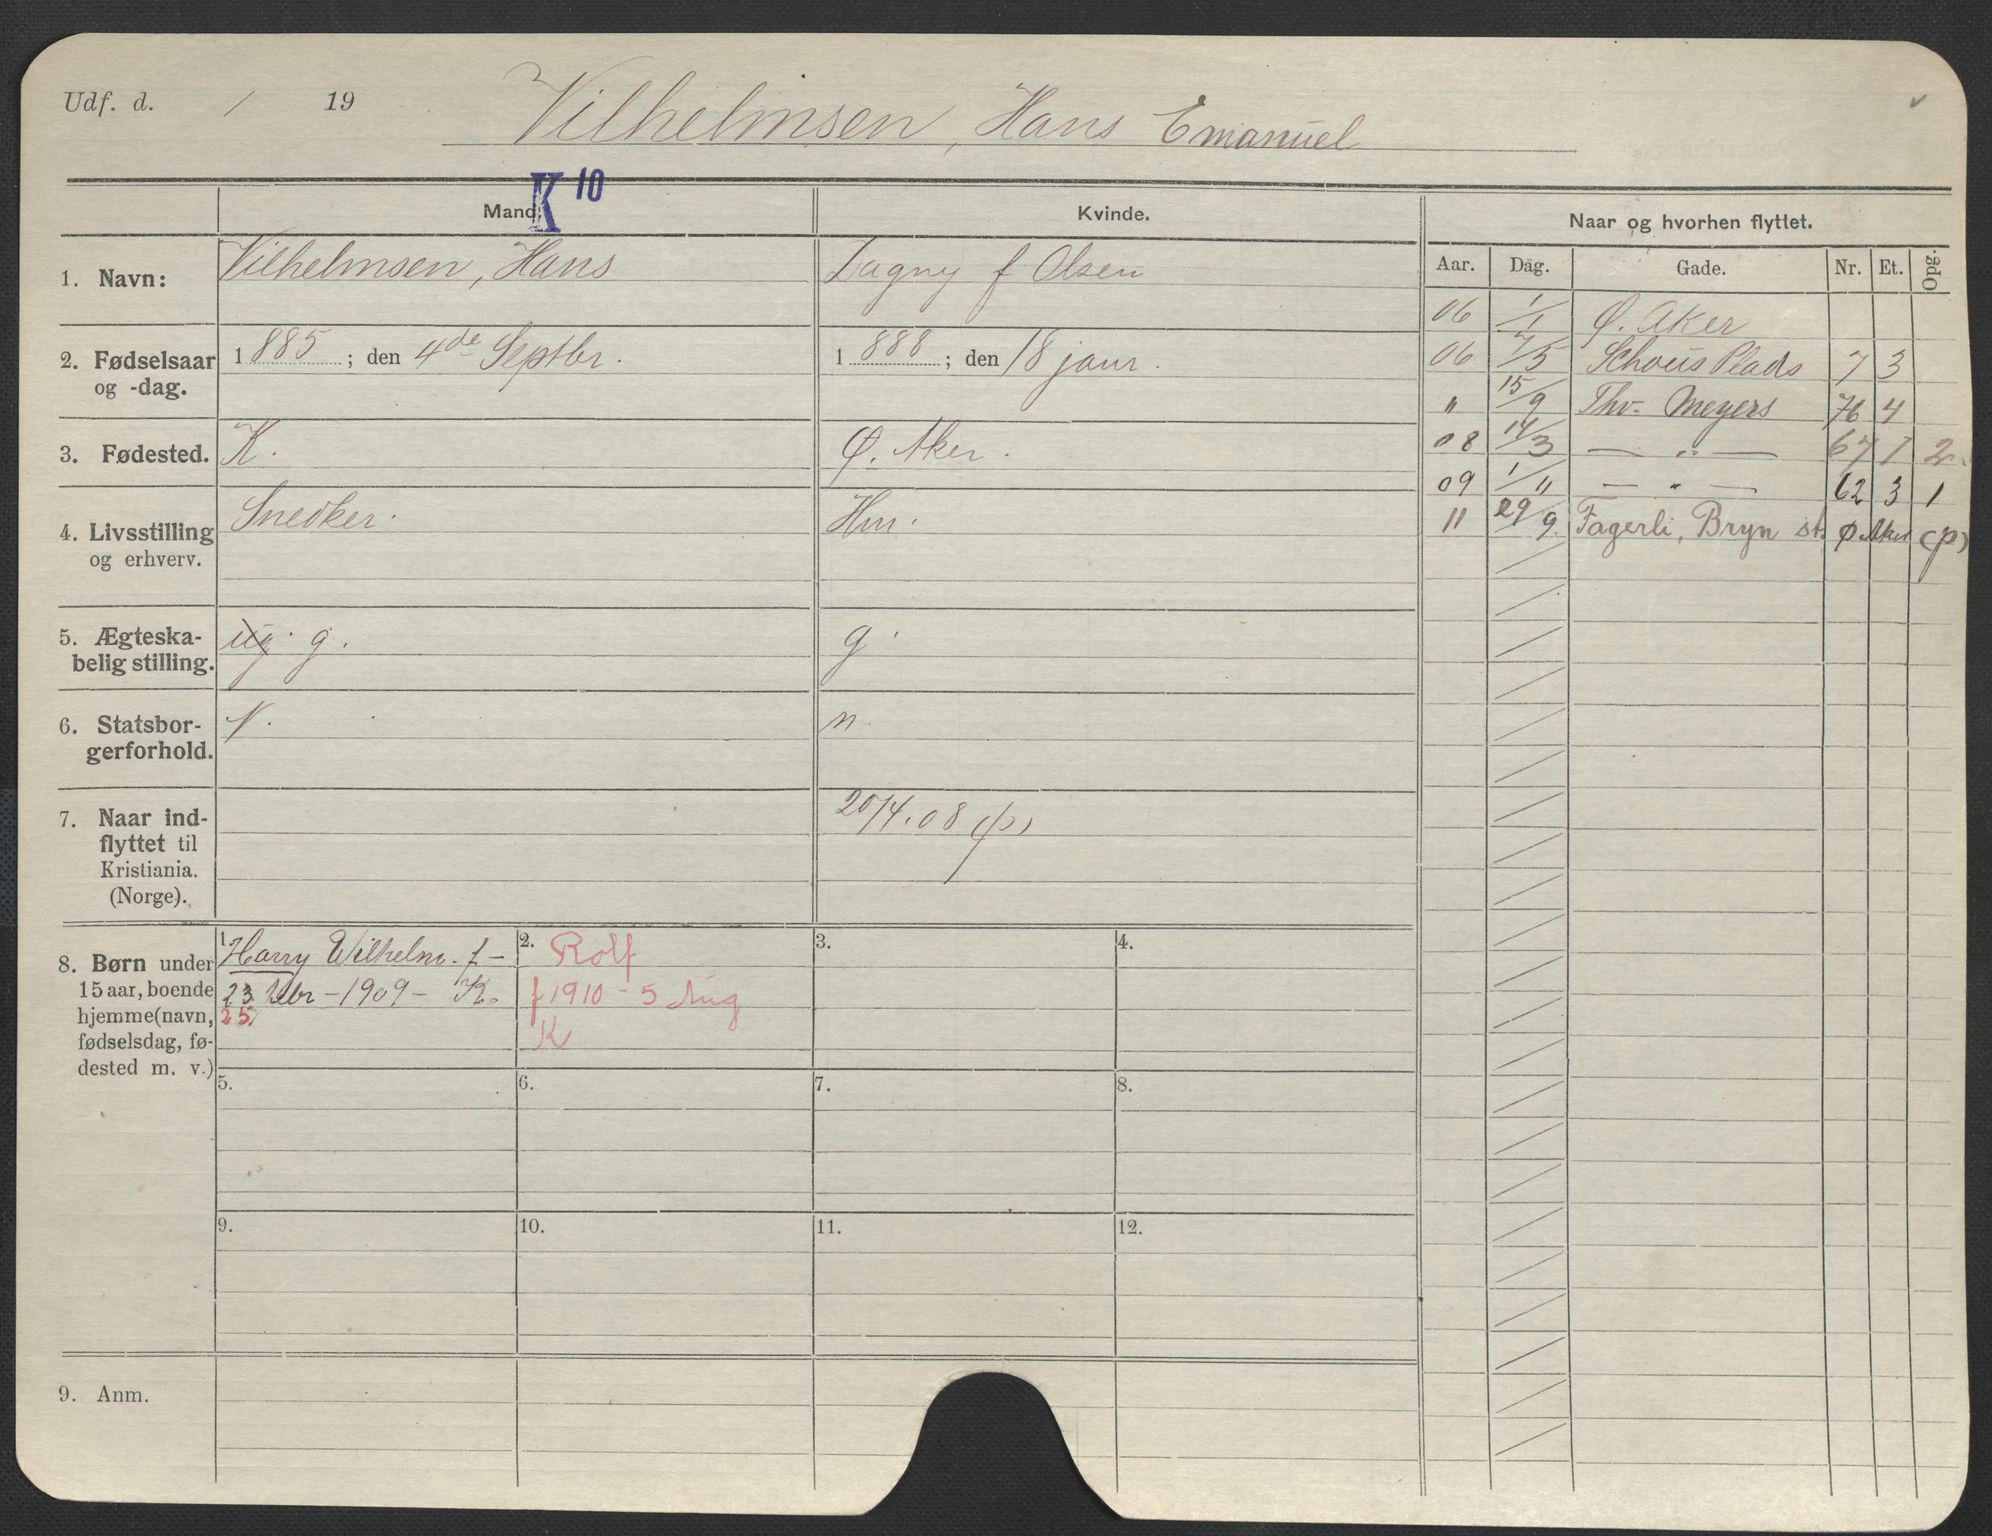 Udf. d. / 19
Vilhelmsen, Hans Emanuel
K 10
Mand. Kvinde. Naar og hvorhen flyttet.
Aar. Dag. Gade. Nr. Et. Opg.
1. Navn: Vilhelmsen, Hans Dagny f Olsen
2. Fødselsaar og -dag. 1885; den 4de Septbr. 1888; den 18 januar.
3. Fødested. K. Ø. Aker.
4. Livsstilling og erhverv. Snedker. Hm.
5. Ægteskabelig stilling. ug. g. g.
6. Statsborgerforhold. N. n.
7. Naar indflyttet til Kristiania. (Norge). 20/4.08 (p)
8. Børn under 15 aar, boende hjemme (navn, fødselsdag, fødested m. v.)
1. Harry Wilhelm. f –
23 – 1909 – K.
25
2. Rolf
f 1910 – 5 Aug
K
3.
4.
5.
6.
7.
8.
9.
10.
11.
12.
9. Anm.
06 1/1 Ø. Aker
06 7/5 Schous Plads 7 3
" 15/9 Thv. Meyers 76 4
08 14/3 — " — 67 1 2
09 1/" — " — 62 3 1
11 29/9. Fagerli, Bryn st. Ø. Aker (p)